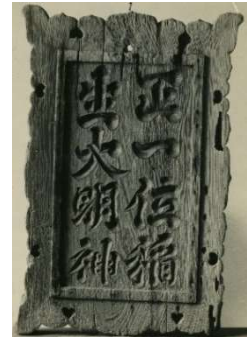 正一位稲
生大明神